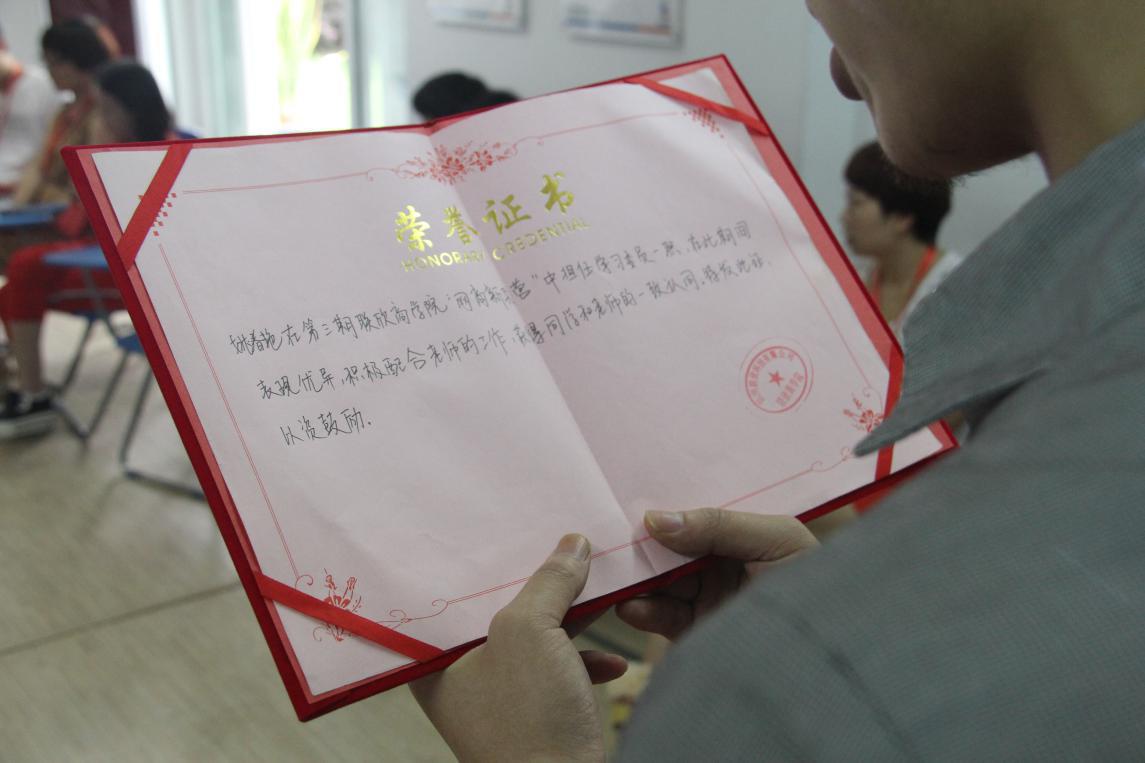 荣誉证书
HONORARY CREDENTIAL
在第三期联欣商学院"网商新 营"中担任学习委员一职,在此期间
表现优异,积极配合老师的工作,获得同学和老师的一致认同.特颁此证,
以资鼓励.